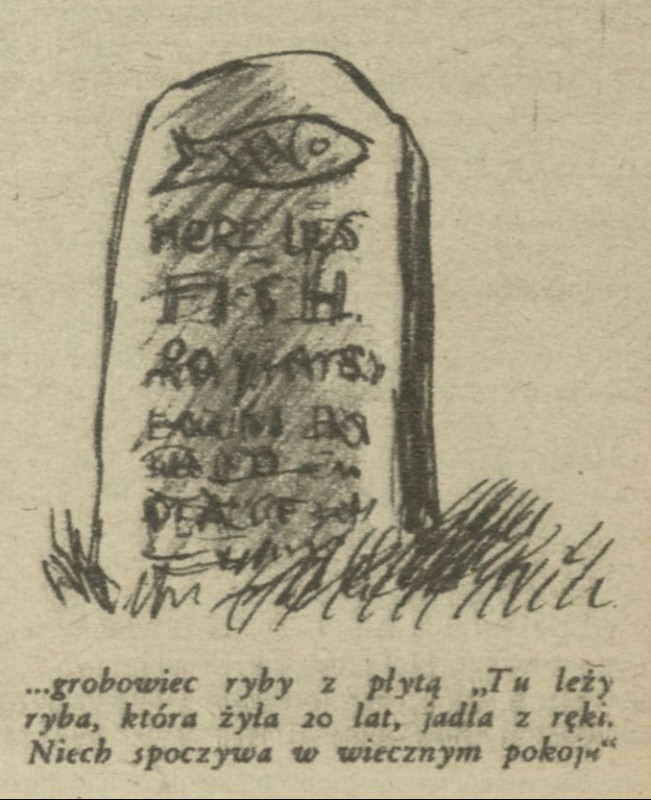 HERE LIES
FISH.
20 
HAND
PEACE
...grobowiec ryby z płytą „Tu leży
ryba, która żyła 20 lat, jadła z ręki.
Niech spoczywa w wiecznym pokoju“